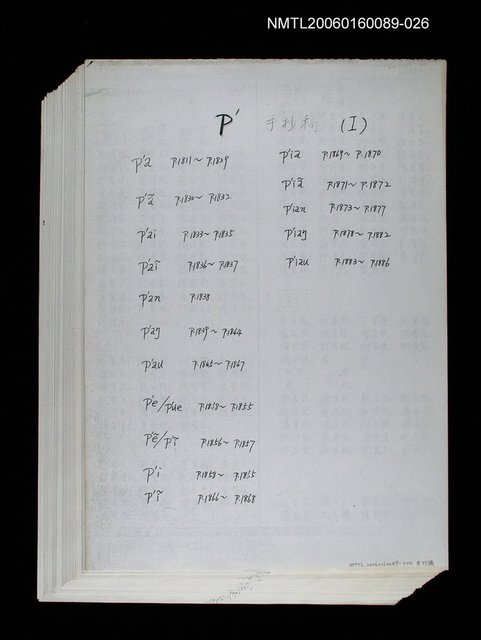 NMTL20060160089-026
P' 手抄稿 (I)
p'a P.1811~ P.1829
p'ã P.1830~ P.1832
p'ai P.1833~ P.1835
p'aĩ P.1836~ P.1837
p'an P.1838
p'aŋ P.1839~ P.1864
p'au P.1865~ P.1867
p'e/p'ue P.1868~ P.1855
p'ẽ/p'ĩ P.1856~ P.1857
p'i P.1858~ P.1865
p'ĩ P.1866~ P.1868
p'ia P.1869~ P.1870
p'iã P.1871~ P.1872
p'ian P.1873~ P.1877
p'iaŋ P.1878~ P.1882
p'iau P.1883~ P.1886